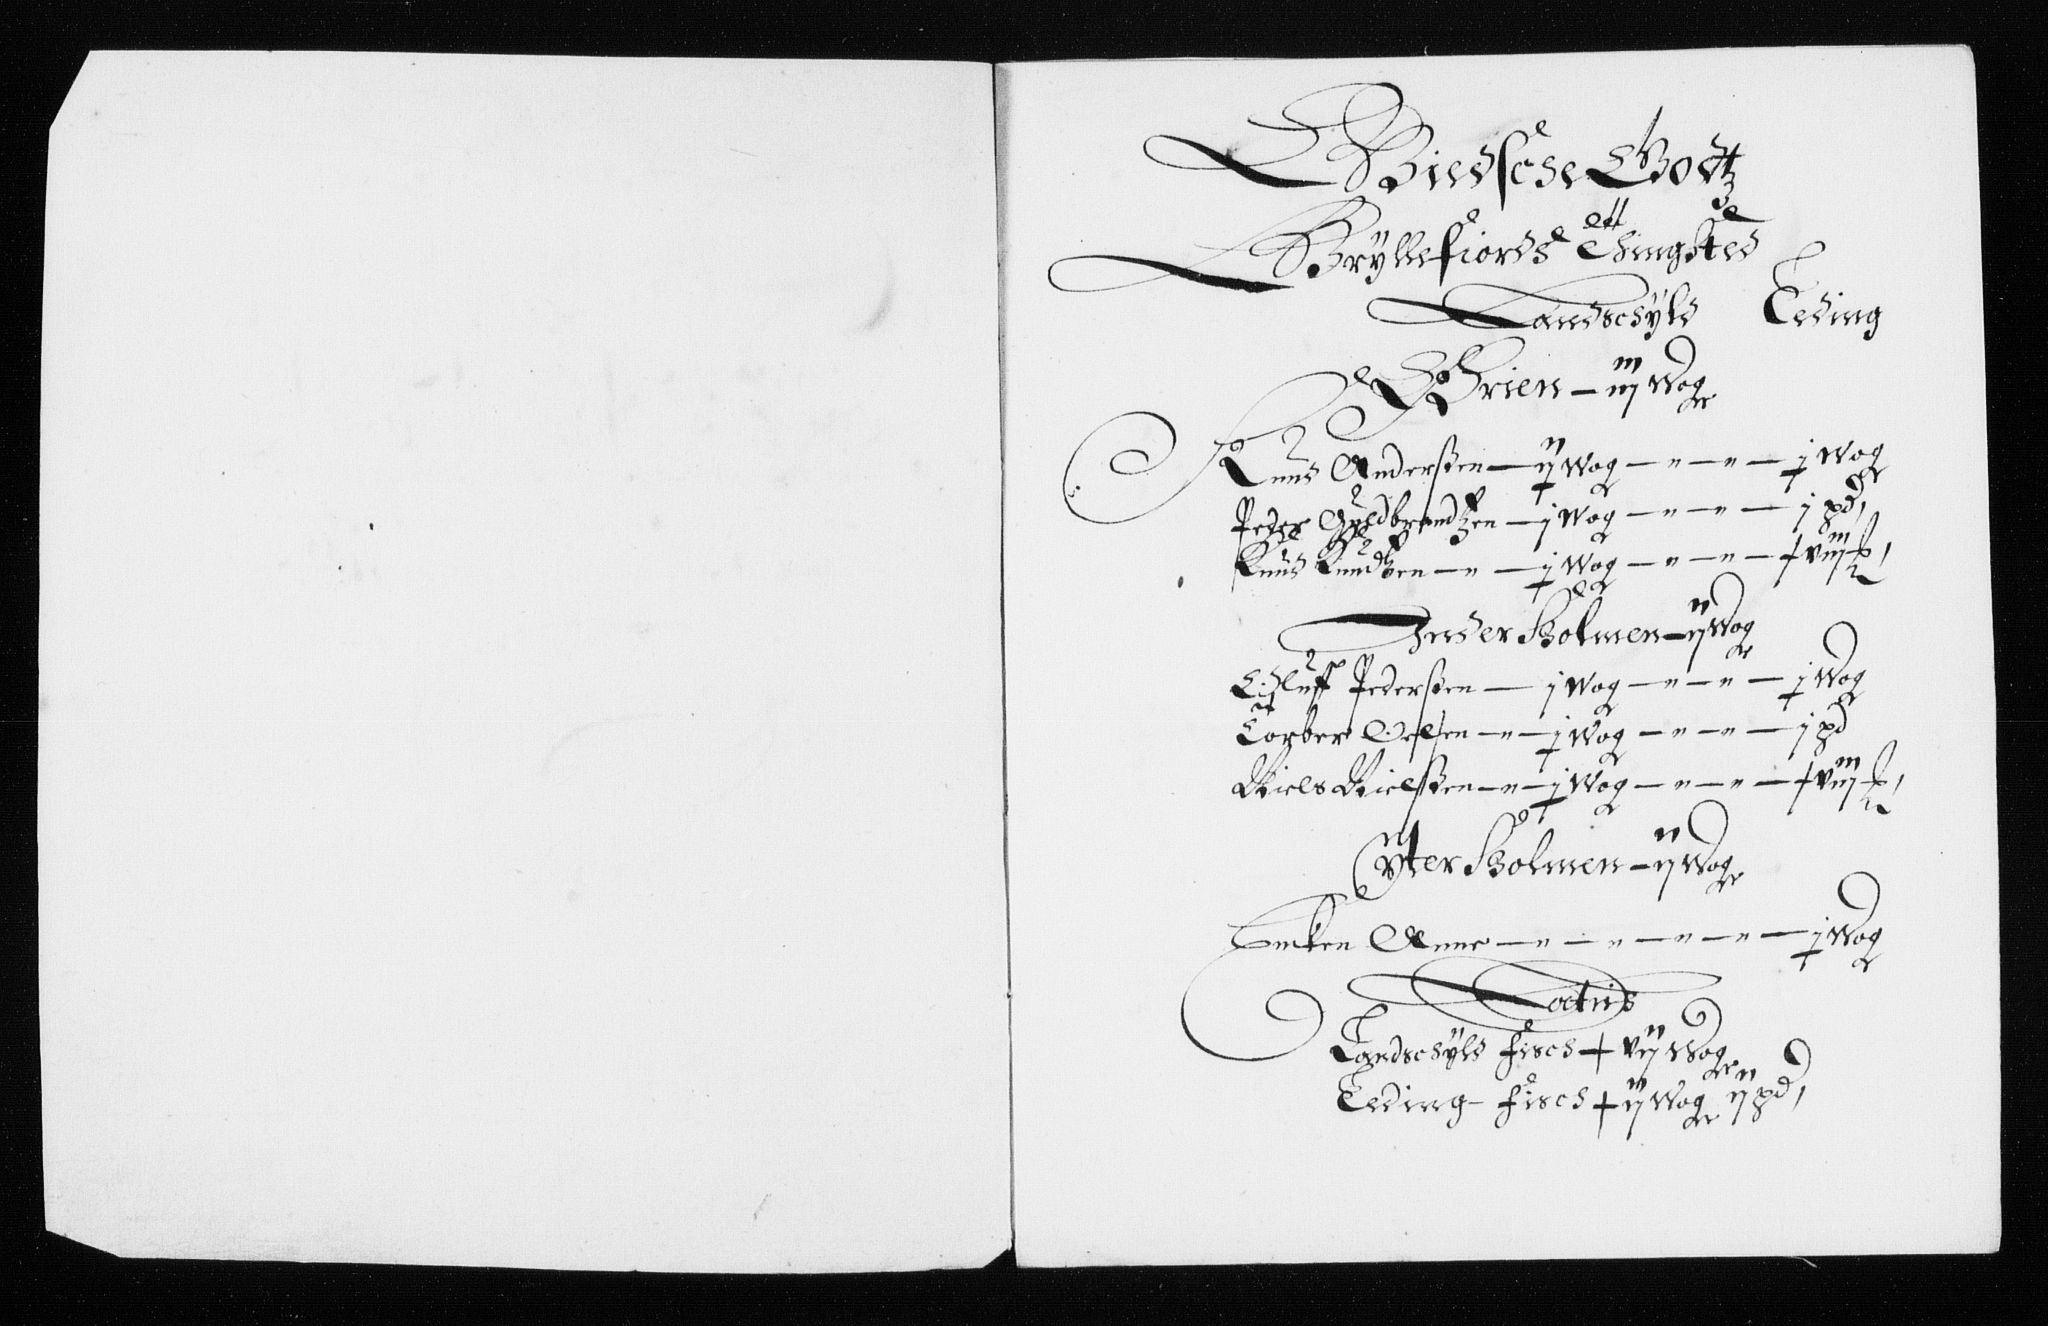 Biedsche Godtz
Gryllefiords Ett Thingsted
Landschyld Leding
Grien — iij wog
Knud Anderssen — ij wog — " — " — j wog
Peder Guldbrandtzen — j wog — " — " — j pd,
Knud Knudtzen — " — j wog — " — " — + viij
Inder Holmen — ij wog
Eilluff Pederssen — j wog — " — " — j wog
Torber Oelsen — " — j wog — " — " — j pd
Niels Nielssen — " — j wog — " — " — + viij
Ytter Holmen — ij wog
Encken Anne — " — " — " — " — j wog
Latus
Landschyld fisch + vij wog
Leding fisch + iij wog ij pd,